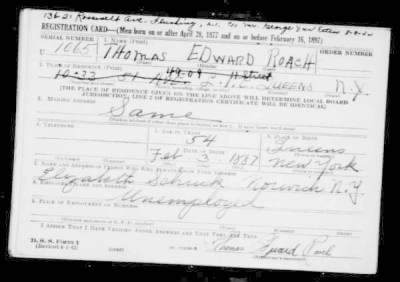 136-21 Roosevelt Ave. Flushing,
REGISTRATION CARD—(Men born on or after April 28, 1877 and on or before February 16, 1897)
SERIAL NUMBER 1. NAME (Print) ORDER NUMBER
U 1065 THOMAS EDWARD ROACH
2. PLACE OF RESIDENCE (Print)
10-23 49-09 St QUEENS N.Y.
[THE PLACE OF RESIDENCE GIVEN ON THE LINE ABOVE WILL DETERMINE LOCAL BOARD
JURISDICTION; LINE 2 OF REGISTRATION CERTIFICATE WILL BE IDENTICAL]
3. MAILING ADDRESS
Same
4. TELEPHONE 5. AGE IN YEARS 6. PLACE OF BIRTH
54 Queens
DATE OF BIRTH
Feb 3 1887 New York
7. NAME AND ADDRESS OF PERSON WHO WILL ALWAYS KNOW YOUR ADDRESS
Elizabeth Norwich N.Y
8. EMPLOYER'S NAME AND ADDRESS
Unemployed
9. PLACE OF EMPLOYMENT OR BUSINESS
I AFFIRM THAT I HAVE VERIFIED ABOVE ANSWERS AND THAT THEY ARE TRUE.
D. S. S. Form 1
(Revised 4-1-42) Thomas Edward Roach